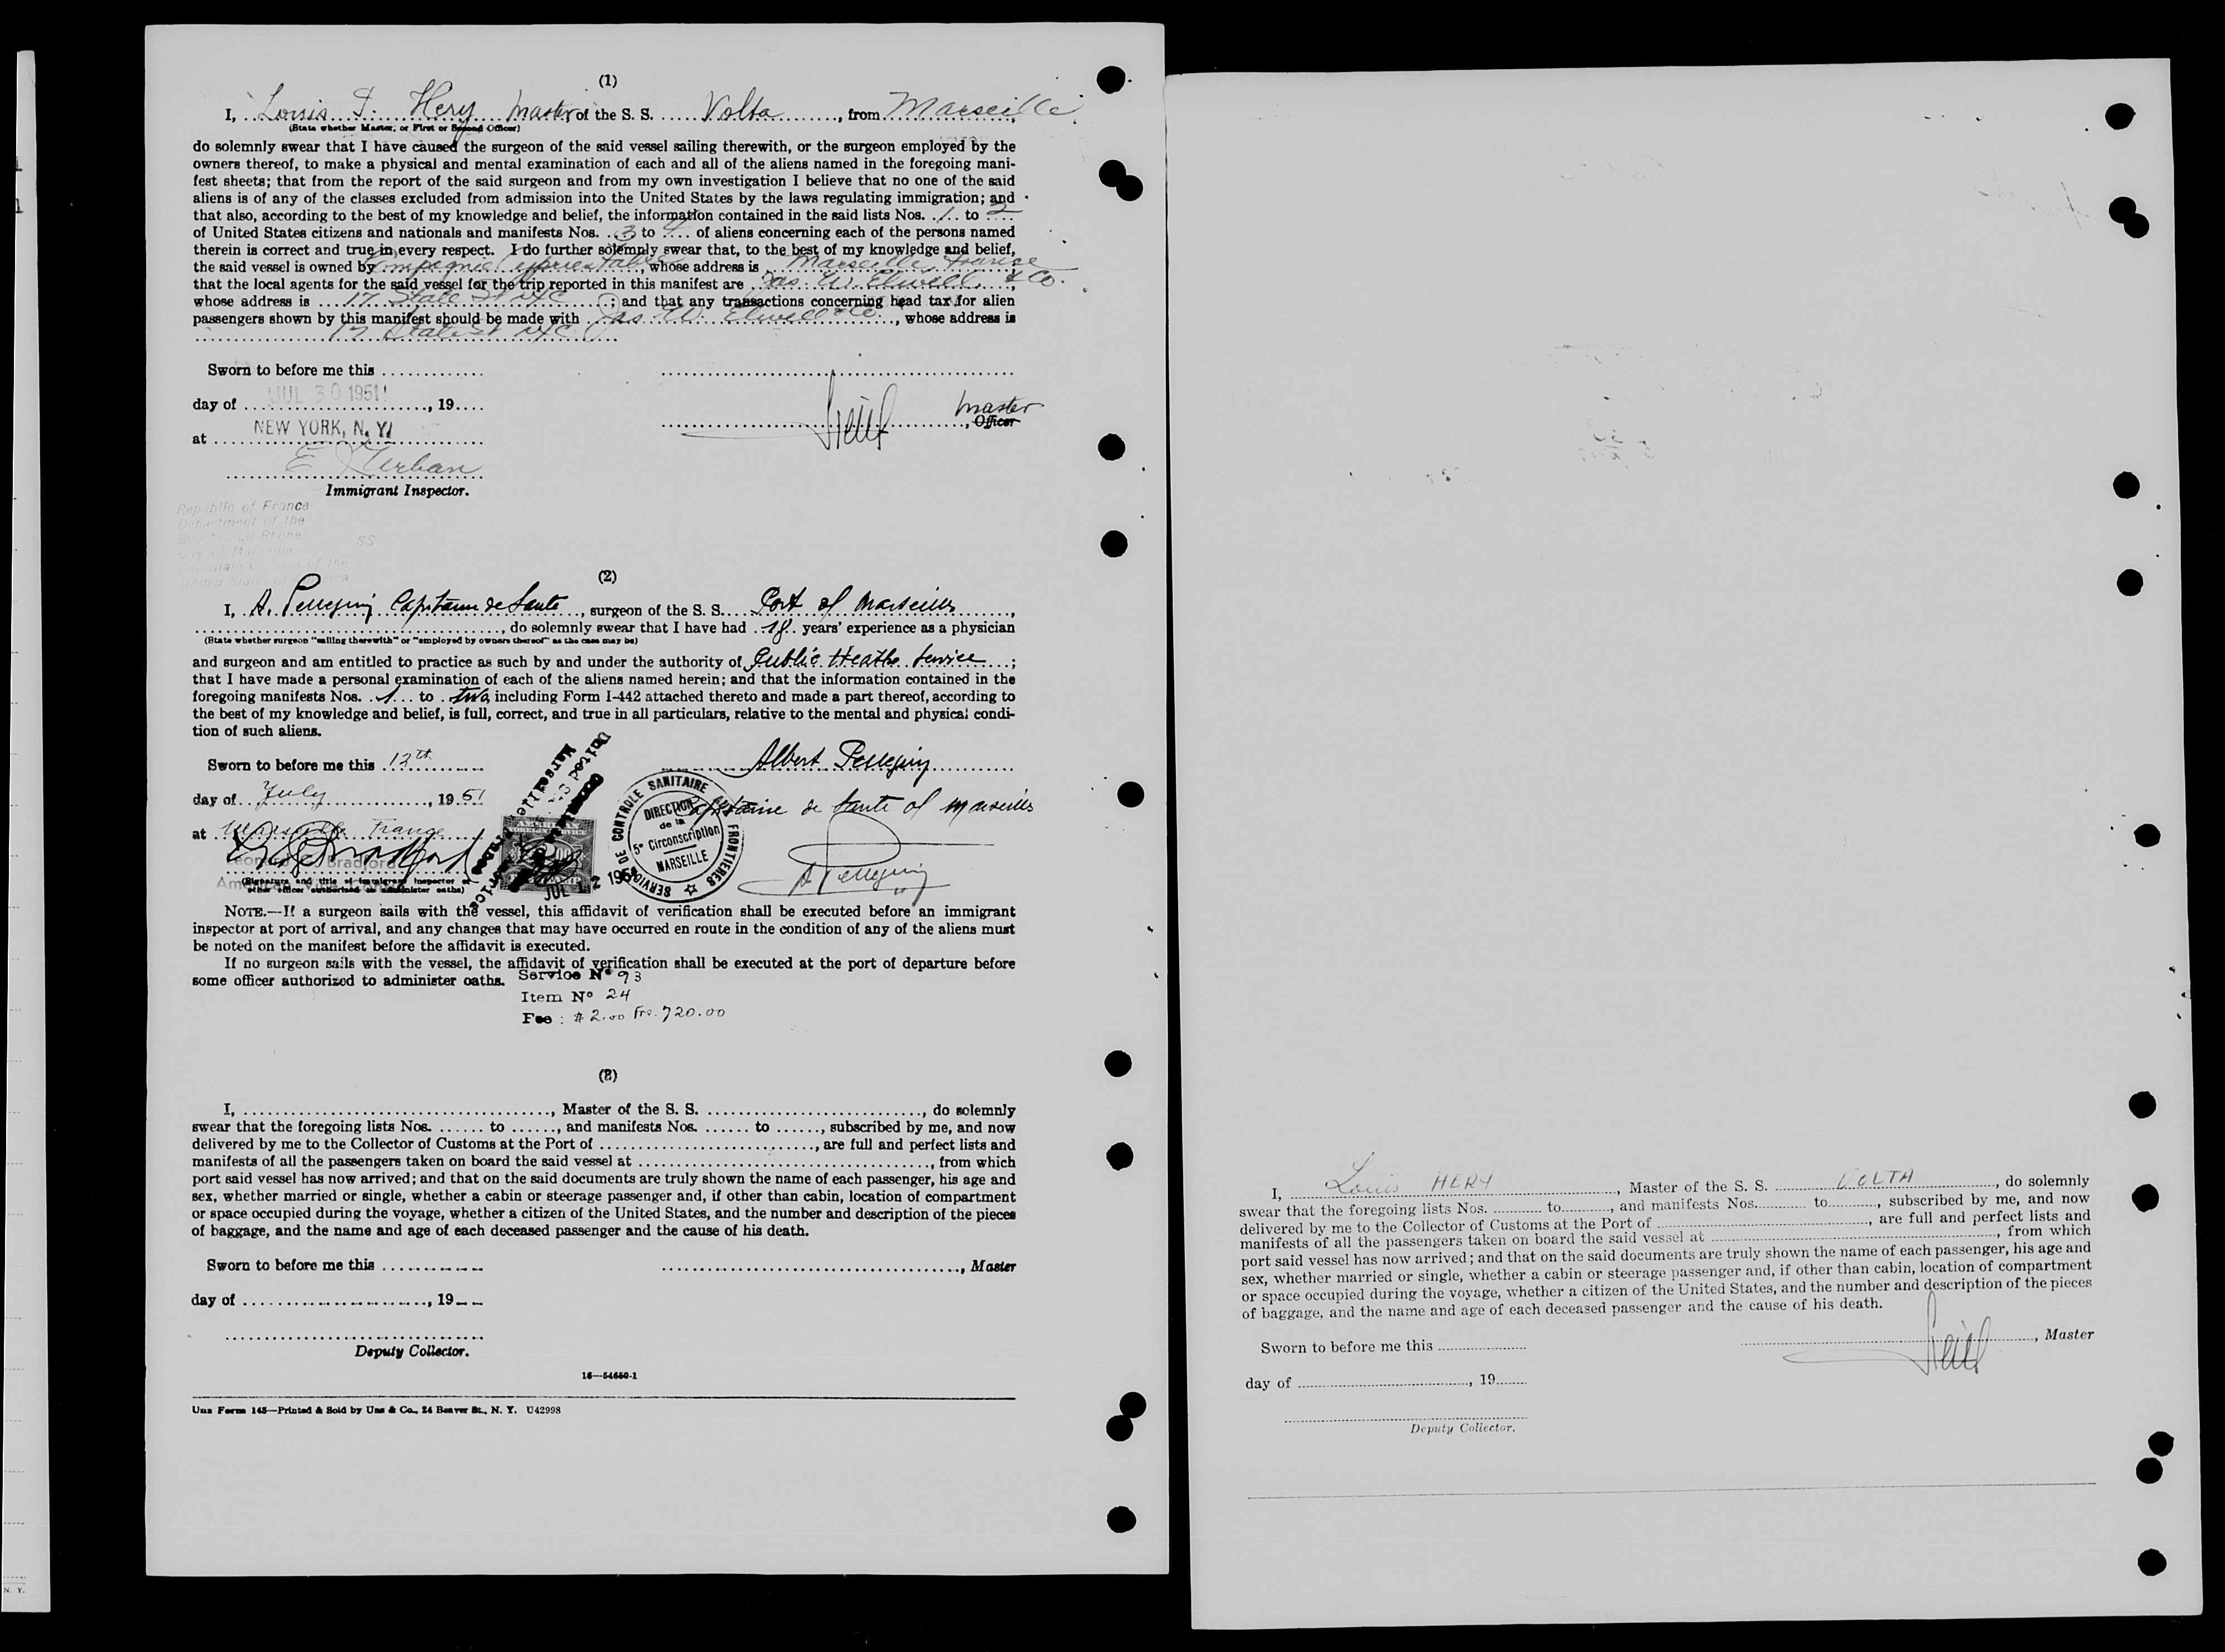 (1)
I, Louis I. Hery Master of the S. S. Volta, from Marseille,
(State whether Master, or First or Second Officer)
do solemnly swear that I have caused the surgeon of the said vessel sailing therewith, or the surgeon employed by the
owners thereof, to make a physical and mental examination of each and all of the aliens named in the foregoing mani-
fest sheets; that from the report of the said surgeon and from my own investigation I believe that no one of the said
aliens is of any of the classes excluded from admission into the United States by the laws regulating immigration; and
that also, according to the best of my knowledge and belief, the information contained in the said lists Nos. 1 to 2
of United States citizens and nationals and manifests Nos. 3 to 4 of aliens concerning each of the persons named
therein is correct and true in every respect. I do further solemnly swear that, to the best of my knowledge and belief,
the said vessel is owned by Compagnie, whose address is Marseille, France
that the local agents for the said vessel for the trip reported in this manifest are Jas. W. Elwell & Co.,
whose address is 17 State St NYC; and that any transactions concerning head tax for alien
passengers shown by this manifest should be made with Jas W. Elwell & Co., whose address is
17 State St NYC
Sworn to before me this
day of JUL 30 1951, 19
at NEW YORK, N. Y.
Master
, Officer
E Urban
Immigrant Inspector.
Republic of France
Department of the
Bouches-du-Rhône
City of Marseille SS
Consulate General of the
United States of America
(2)
I, A. Pellegrin Capitaine de Santé, surgeon of the S. S. Port of Marseilles,
, do solemnly swear that I have had 18 years' experience as a physician
(State whether surgeon "sailing therewith" or "employed by owners thereof" as the case may be)
and surgeon and am entitled to practice as such by and under the authority of Public Heath Service;
that I have made a personal examination of each of the aliens named herein; and that the information contained in the
foregoing manifests Nos. 1 to two including Form I-442 attached thereto and made a part thereof, according to
the best of my knowledge and belief, is full, correct, and true in all particulars, relative to the mental and physical condi-
tion of such aliens.
Sworn to before me this 12th
Albert Pellegrin
day of July, 1951
Capitaine de Santé of Marseilles
at Marseille France
Leonard Bradford
American Vice Consul
(Signature and title of immigrant inspector or
other officer authorized to administer oaths)
JUL 12 1951
SERVICE DE CONTROLE SANITAIRE FRONTIERES
DIRECTION
de la
5e Circonscription
MARSEILLE
A Pellegrin
NOTE.—If a surgeon sails with the vessel, this affidavit of verification shall be executed before an immigrant
inspector at port of arrival, and any changes that may have occurred en route in the condition of any of the aliens must
be noted on the manifest before the affidavit is executed.
If no surgeon sails with the vessel, the affidavit of verification shall be executed at the port of departure before
some officer authorized to administer oaths.
Service No 93
Item No 24
Fee : $ 2.00 Frs. 720.00
(3)
I, , Master of the S. S. , do solemnly
swear that the foregoing lists Nos. to , and manifests Nos. to , subscribed by me, and now
delivered by me to the Collector of Customs at the Port of , are full and perfect lists and
manifests of all the passengers taken on board the said vessel at , from which
port said vessel has now arrived; and that on the said documents are truly shown the name of each passenger, his age and
sex, whether married or single, whether a cabin or steerage passenger and, if other than cabin, location of compartment
or space occupied during the voyage, whether a citizen of the United States, and the number and description of the pieces
of baggage, and the name and age of each deceased passenger and the cause of his death.
Sworn to before me this
, Master
day of , 19
Deputy Collector.
16—54650-1
Unz Form 145—Printed & Sold by Unz & Co., 24 Beaver St., N. Y. U42998
I, Louis HERY, Master of the S. S. VOLTA, do solemnly
swear that the foregoing lists Nos. to , and manifests Nos. to , subscribed by me, and now
delivered by me to the Collector of Customs at the Port of , are full and perfect lists and
manifests of all the passengers taken on board the said vessel at , from which
port said vessel has now arrived; and that on the said documents are truly shown the name of each passenger, his age and
sex, whether married or single, whether a cabin or steerage passenger and, if other than cabin, location of compartment
or space occupied during the voyage, whether a citizen of the United States, and the number and description of the pieces
of baggage, and the name and age of each deceased passenger and the cause of his death.
Sworn to before me this
, Master
day of , 19
Deputy Collector.
N. Y.